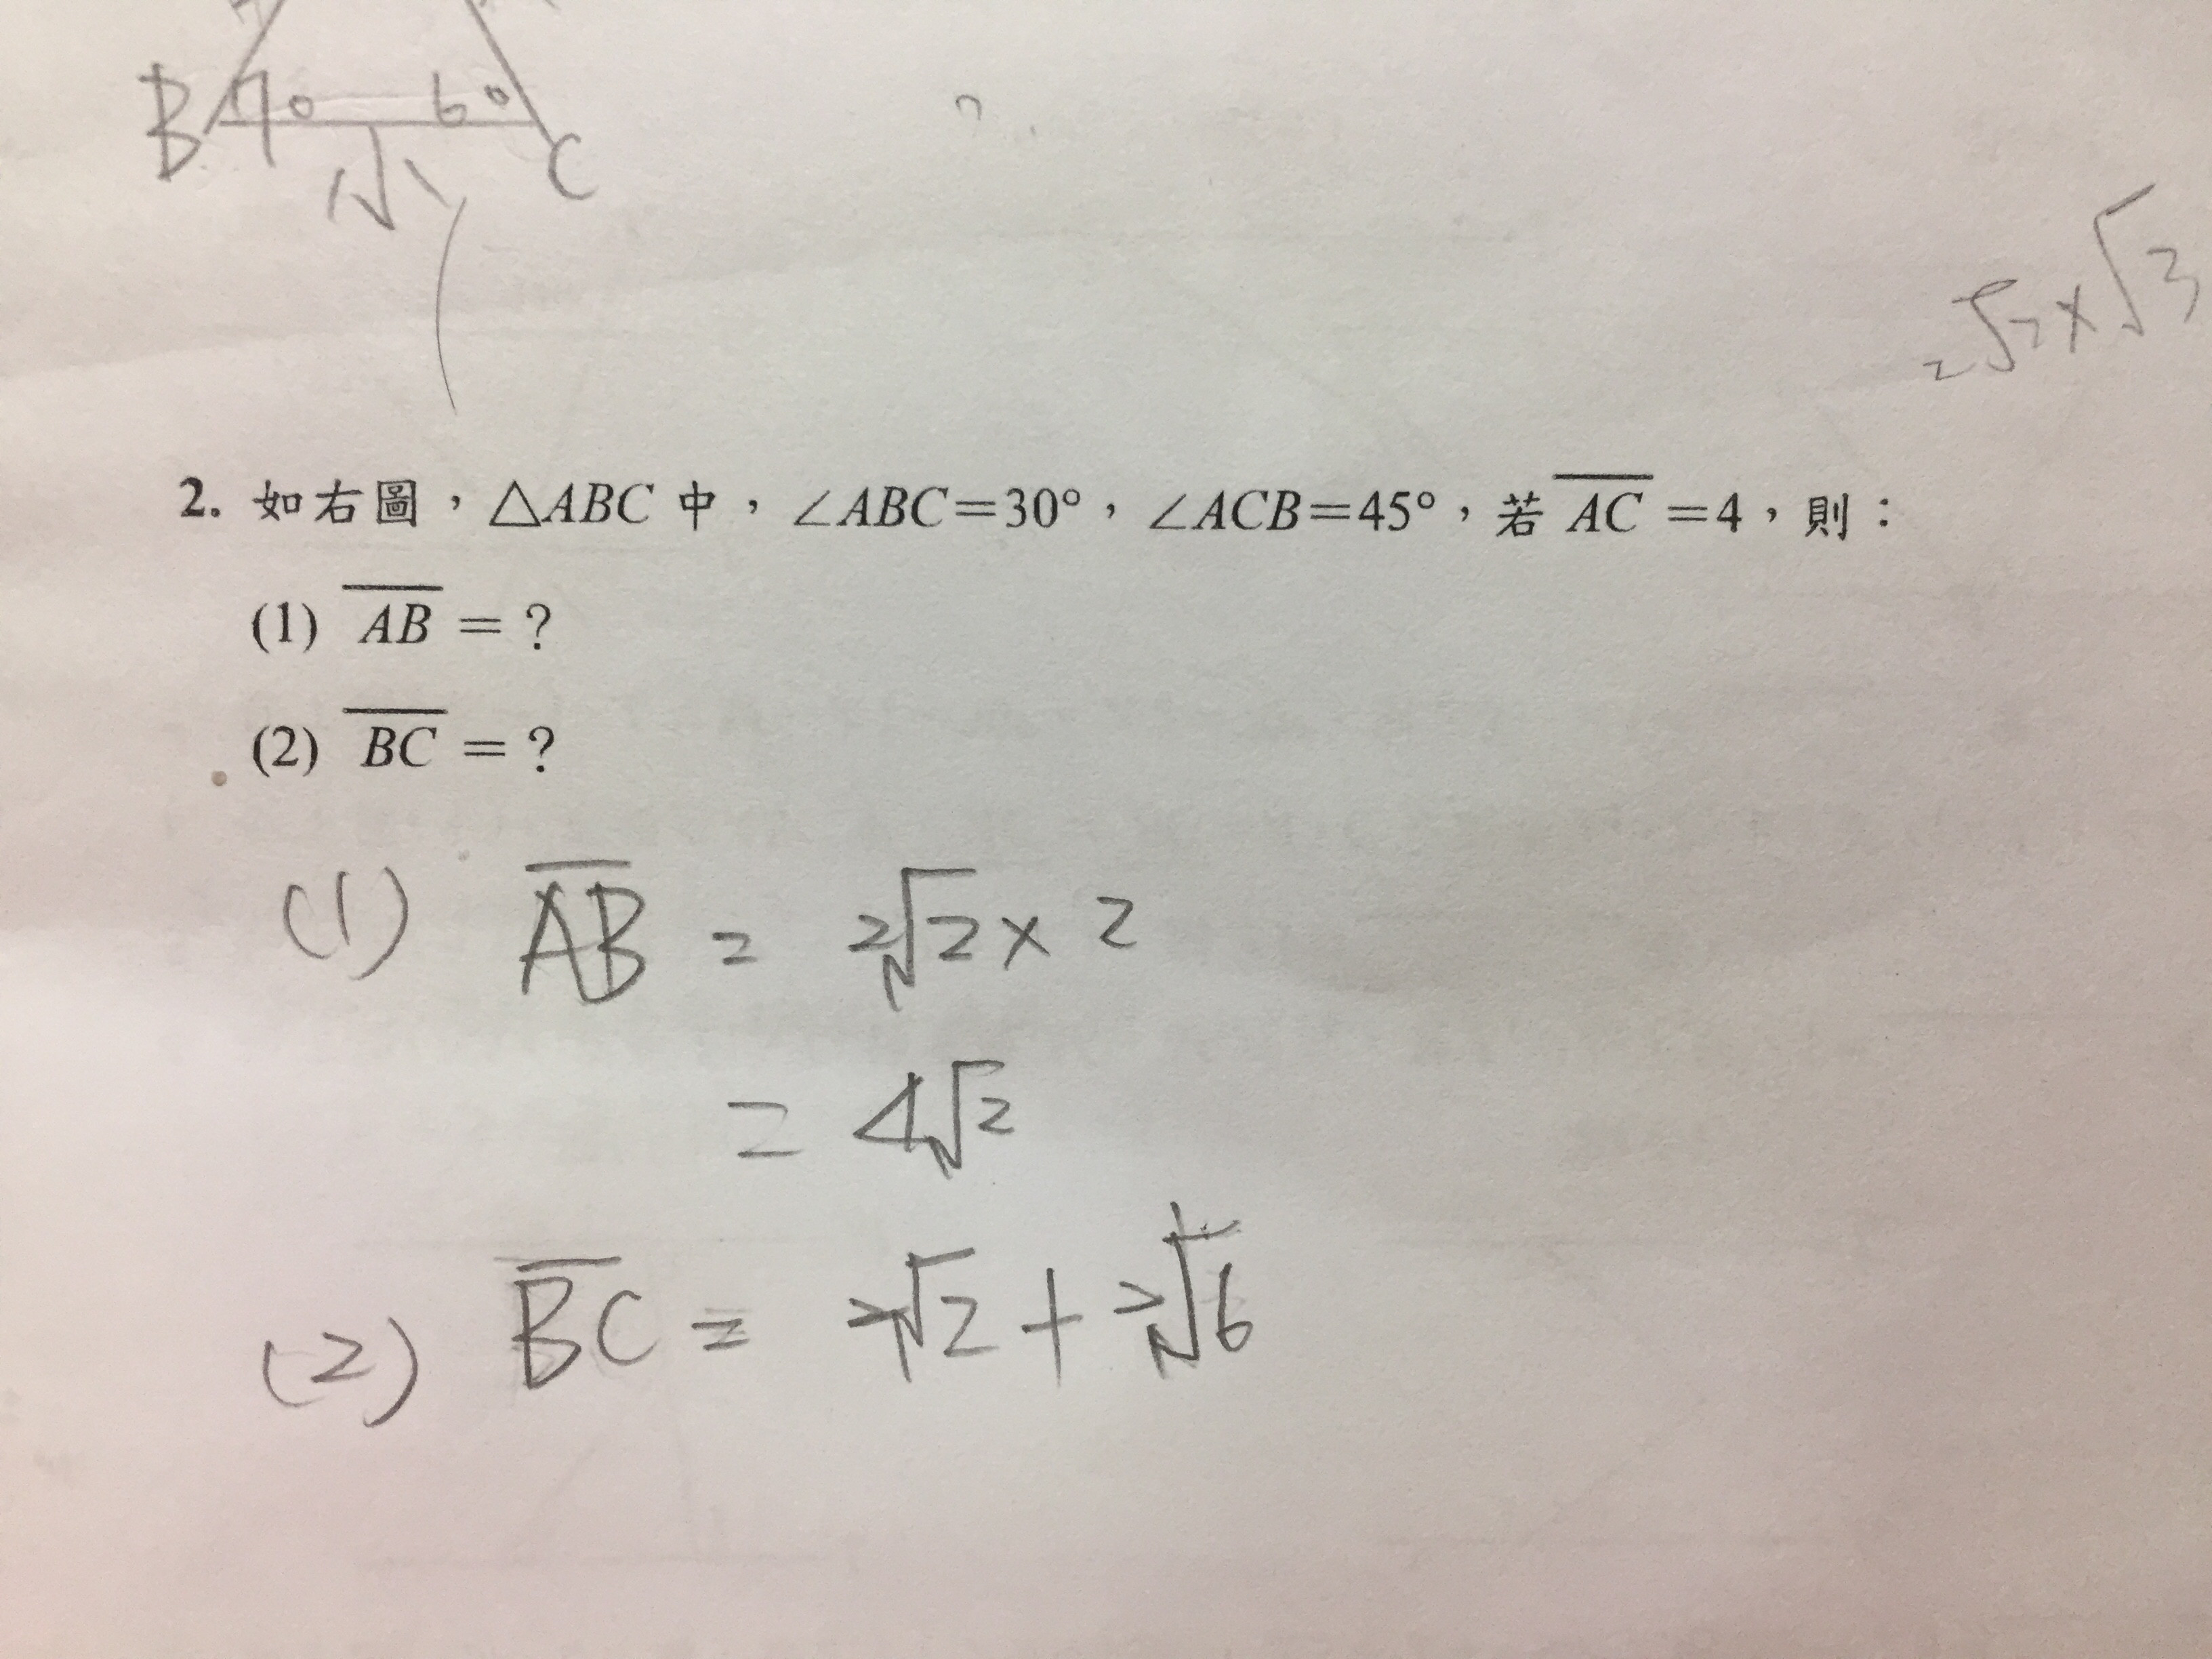 B 70 60 C
小
2√2×√3
2. 如右圖，△ABC 中，∠ABC=30°，∠ACB=45°，若 AC =4，則：
(1) AB = ?
(2) BC = ?
(1) AB = 2√2 × 2
= 4√2
(2) BC = 2√2 + 2√6